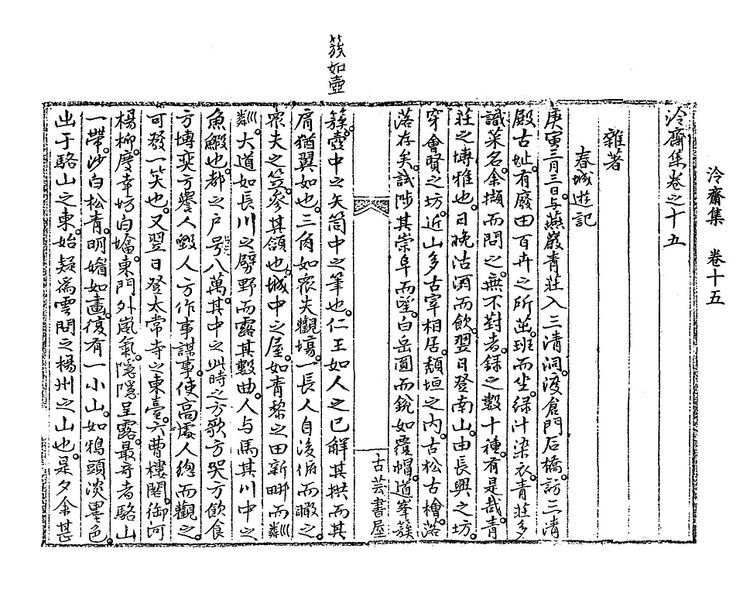 泠齋集 卷十五
簇如壺
泠齋集卷之十五
雜著
春城遊記
庚寅三月三日与燕巖青莊入三清洞渡倉門石橋訪三清
殿古址有廢田百卉之所茁班而坐綠汁染衣青莊多
識菜名余擷而問之無不對者錄之數十種有是哉青
莊之博雅也日晚沽酒而飲翌日登南山由長興之坊
穿會賢之坊近山多古宰相居頹垣之内古松古檜落
落存矣試陟其崇阜而望白岳圓而銳如覆帽道峯簇
古芸書屋
簇壺中之矢筒中之筆也仁王如人之已解其拱而其
肩猶翼如也三角如衆夫觀場一長人自後俯而瞰之
衆夫之笠參其頷也城中之屋如青黎之田新畊而粼
粼大道如長川之劈野而露其數曲人与馬其川中之
魚鰕也都之戶号八萬其中之此時之方歌方哭方飲食
方博奕方譽人毀人方作事謀事使高處人緫而觀之
可發一笑也又翌日登太常寺之東臺六曹樓閣御河
楊柳慶幸坊白塔東門外嵐氣隱隱呈露最奇者駱山
一帶沙白松青明媚如畫復有一小山如鴉頭淡墨色
出于駱山之東始疑爲雲間之楊州之山也是夕余甚